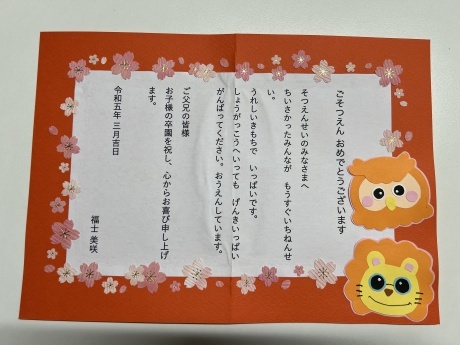 ごそつえん おめでとうございます
そつえんせいのみなさまへ
ちいさかったみんなが もうすぐいちねんせ
い。
うれしいきもちで いっぱいです。
しょうがっこうへいっても げんきいっぱい
がんばってください。おうえんしています。
ご父兄の皆様
お子様の卒園を祝し、心からお喜び申し上げ
ます。
令和五年 三月吉日
福士 美咲